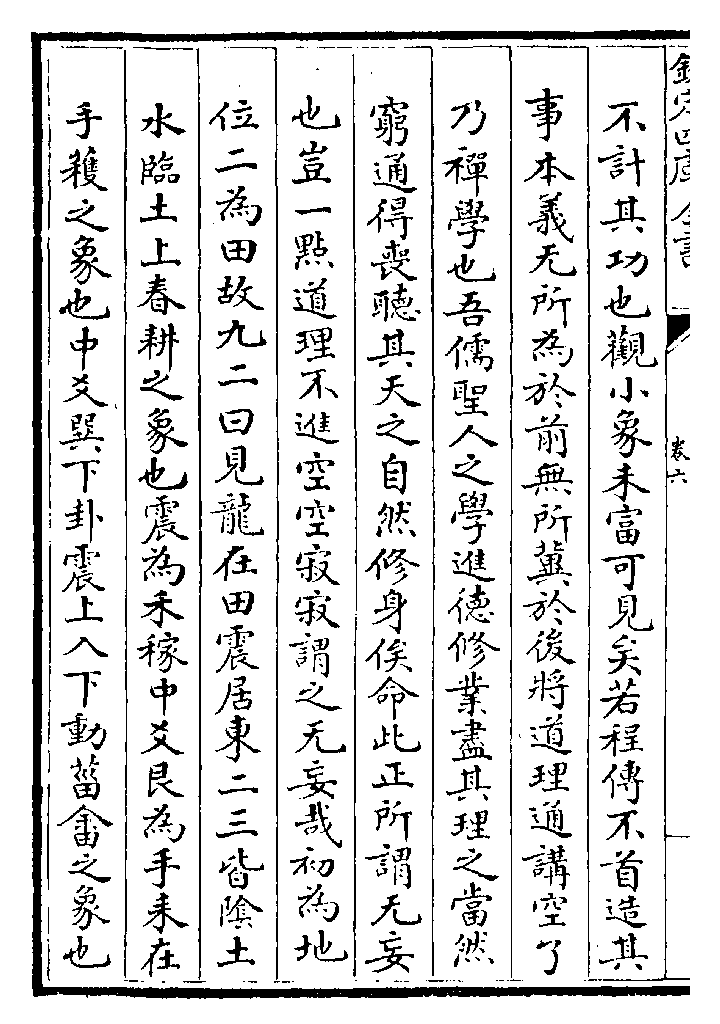 欽定四庫全書
卷六
不計其功也觀小象未富可見矣若程傳不首造其
事本義无所為於前無所冀於後將道理通講空了
乃禪學也吾儒聖人之學進德修業盡其理之當然
窮通得喪聽其天之自然修身俟命此正所謂无妄
也豈一點道理不進空空寂寂謂之无妄哉初為地
位二為田故九二曰見龍在田震居東二三皆陰土
水臨土上春耕之象也震為禾稼中爻艮為手禾在
手穫之象也中爻巽下卦震上入下動菑畬之象也